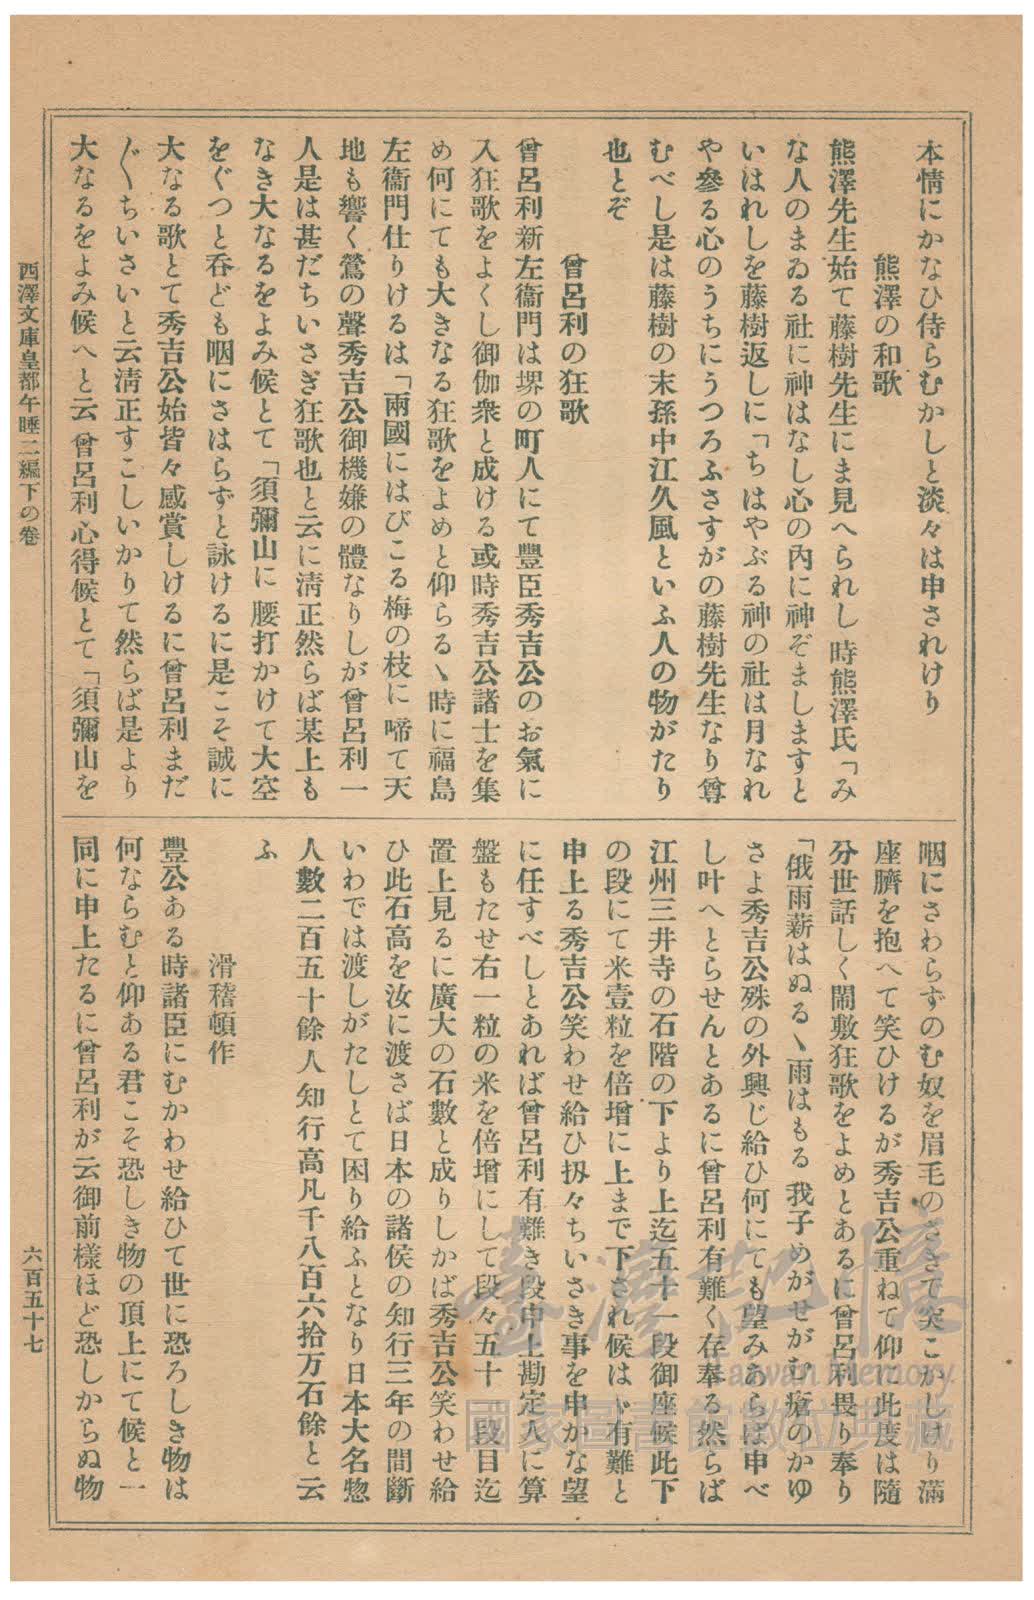 本情にかなひ侍らむかしと淡々は申されけり
熊澤の和歌
熊澤先生始て藤樹先生にま見へられし時熊澤氏「み
な人のまゐる社に神はなし心の內に神ぞましますと
いはれしを藤樹返しに「ちはやぶる神の社は月なれ
や參る心のうちにうつろふさすがの藤樹先生なり尊
むべし是は藤樹の末孫中江久風といふ人の物がたり
也とぞ
曾呂利の狂歌
曾呂利新左衞門は堺の町人にて豐臣秀吉公のお氣に
入狂歌をよくし御伽衆と成ける或時秀吉公諸士を集
め何にても大きなる狂歌をよめと仰らるゝ時に福島
左衞門仕りけるは「兩國にはびこる梅の枝に啼て天
地も響く鶯の聲秀吉公御機嫌の體なりしが曾呂利一
人是は甚だちいさぎ狂歌也と云に淸正然らば某上も
なき大なるをよみ候とて「須彌山に腰打かけて大空
をぐつと呑ども咽にさはらずと詠けるに是こそ誠に
大なる歌とて秀吉公始皆々感賞しけるに曾呂利まだ
〲ちいさいと云淸正すこしいかりて然らば是より
大なるをよみ候へと云曾呂利心得候とて「須彌山を
咽にさわらずのむ奴を眉毛のさきで突こかしけり滿
座臍を抱へて笑ひけるが秀吉公重ねて仰に此度は隨
分世話しく閙敷狂歌をよめとあるに曾呂利畏り奉り
「俄雨薪はぬるゝ雨はもる我子めがせがむ瘡のかゆ
さよ秀吉公殊の外興じ給ひ何にても望みあらば申べ
し叶へとらせんとあるに曾呂利有難く存奉る然らば
江州三井寺の石階の下より上迄五十一段御座候此下
の段にて米壹粒を倍增に上まで下され候はゞ有難と
申上る秀吉公笑わせ給ひ扨々ちいさき事を申かな望
に任すべしとあれば曾呂利有難き段申上勘定人に算
盤もたせ右一粒の米を倍增にして段々五十一段目迄
置上見るに廣大の石數と成りしかば秀吉公笑わせ給
ひ此石高を汝に渡さば日本の諸侯の知行三年の間斷
いわでは渡しがたしとて困り給ふとなり日本大名惣
人數二百五十餘人知行高凡千八百六拾万石餘と云
ふ
滑稽頓作
豐公ある時諸臣にむかわせ給ひて世に恐ろしき物は
何ならむと仰ある君こそ恐しき物の頂上にて候と一
同に申上たるに曾呂利が云御前樣ほど恐しからぬ物
西澤文庫皇都午睡二編下の卷
六百五十七
臺灣記憶
Taiwan Memory
國家圖書館數位典藏